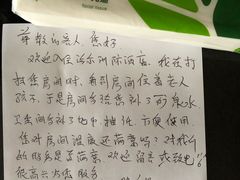 尊敬的客人 您好
欢迎入住 国际酒店 我在打
扫您房间时 看到房间住着老人
孩子 于是房间多给您补了两瓶水
卫生间多补了地巾 抽纸 方便使用
您对房间温度还满意吗？对我们
的服务是否满意 欢迎留言或致电
很高兴为您服务